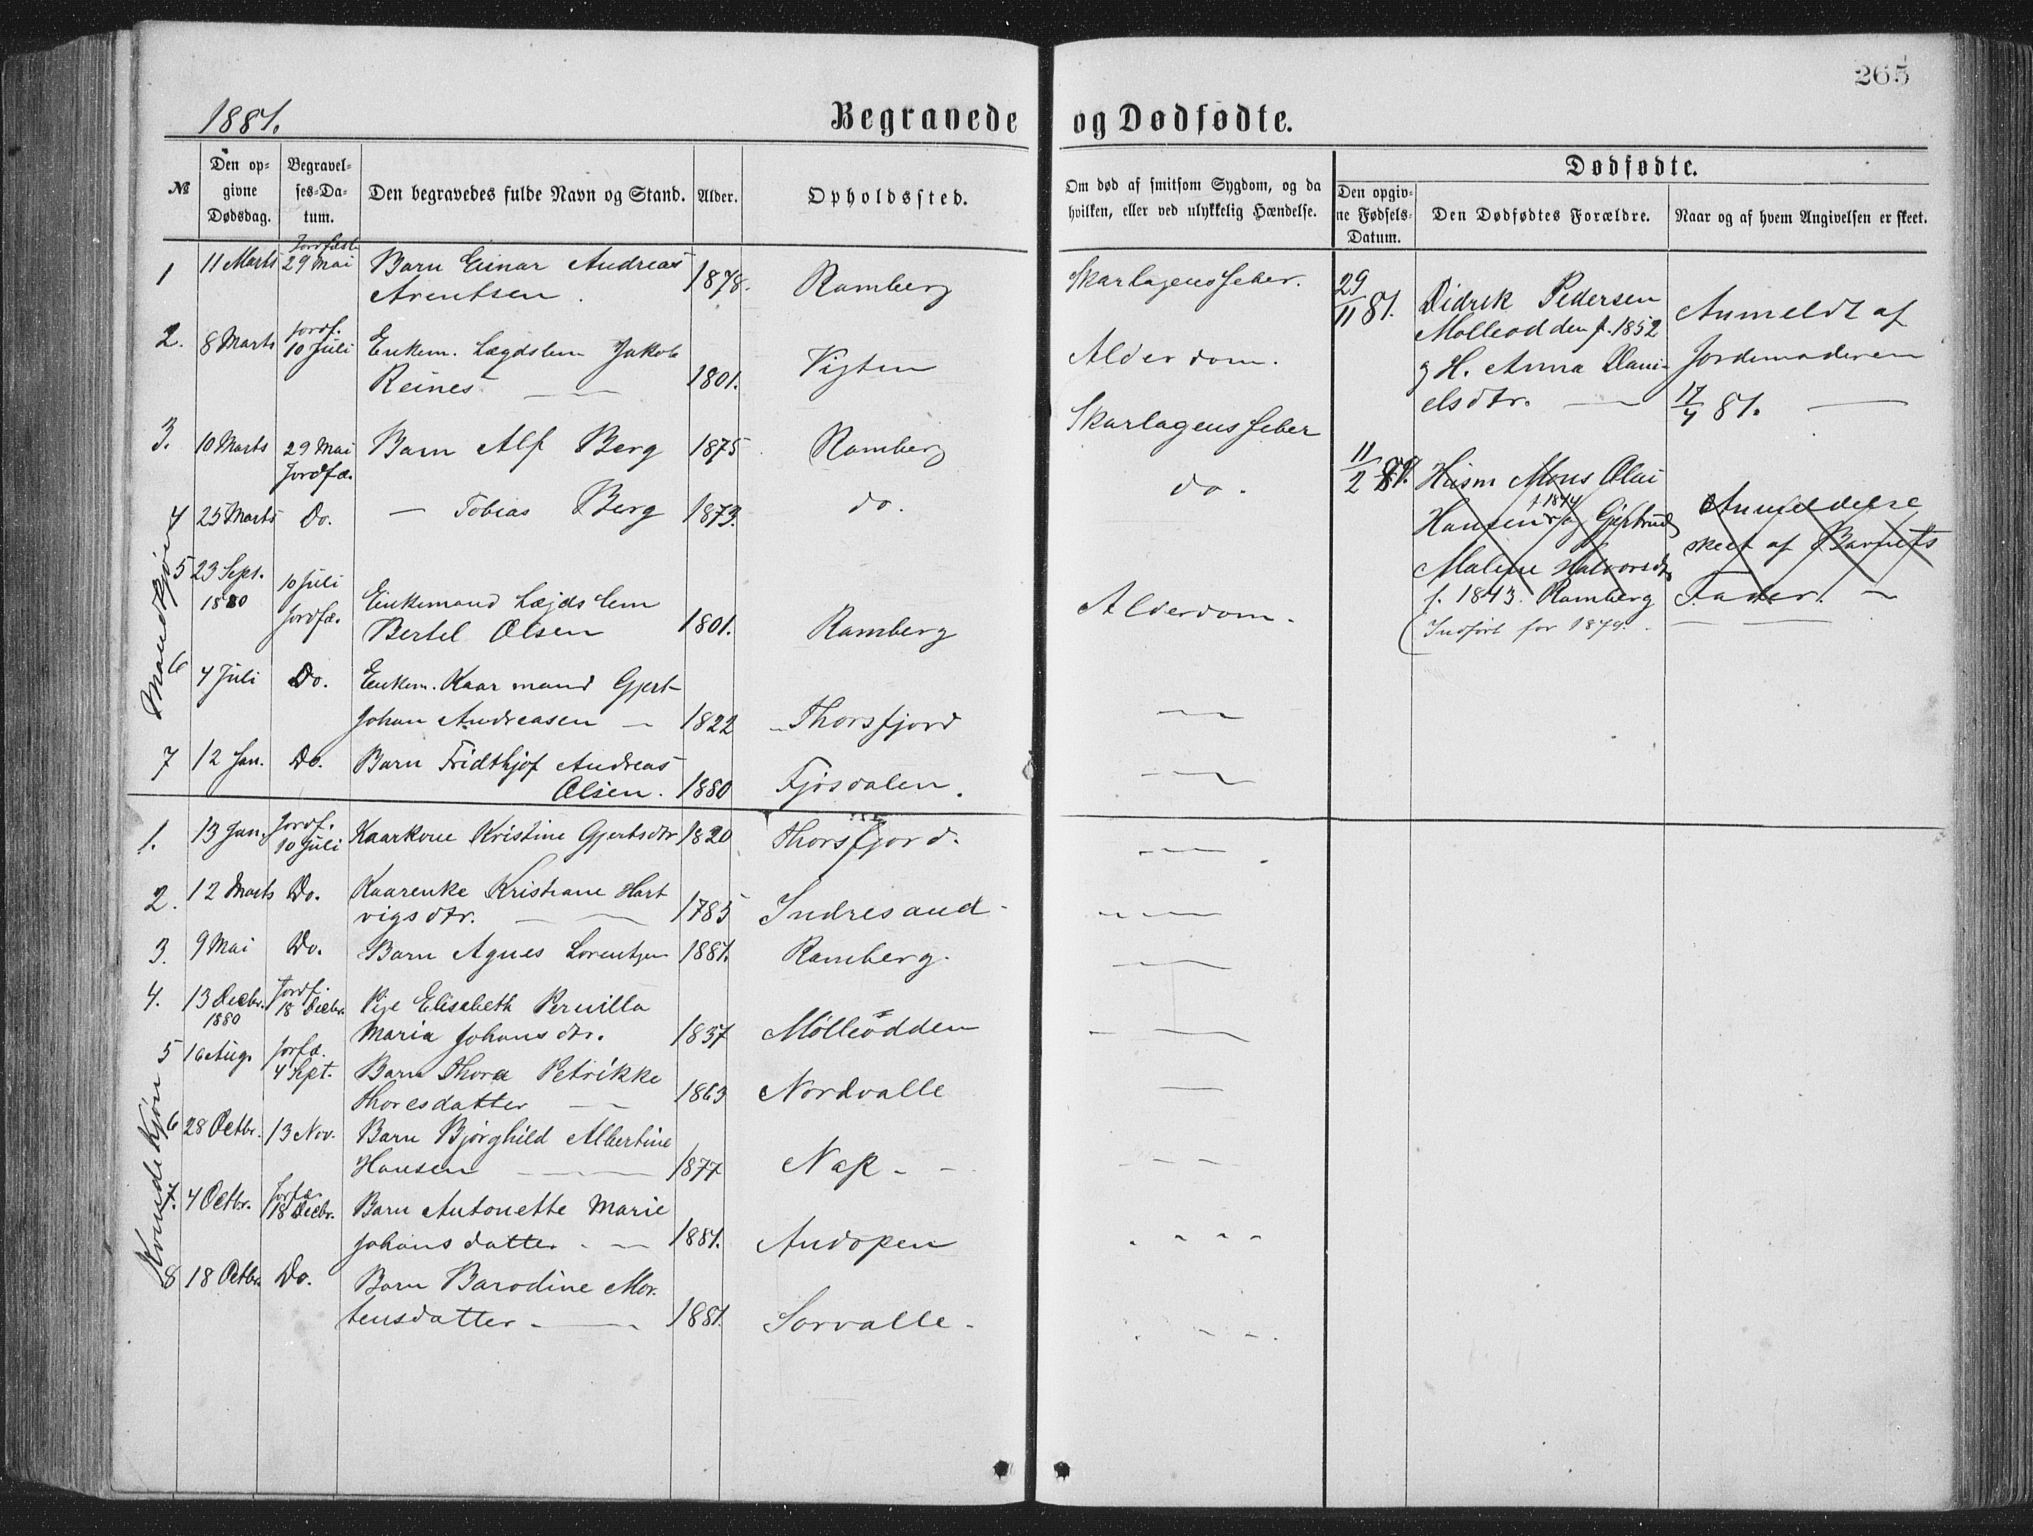 265
1881.
Begravede og Dødfødte.
№
Den op-
givne
Dødsdag.
Begravel-
ses-Da-
tum.
Den begravedes fulde Navn og Stand.
Alder.
Opholdssted.
Om død af smitsom Sygdom, og da
hvilken, eller ved ulykkelig Hændelse.
Dødfødte.
Den opgiv-
ne Fødsels-
Datum.
Den Dødfødtes Forældre.
Naar og af hvem Angivelsen er skeet.
Mandkjøn
1 11 Marts Jordfæst. 29 Mai Barn Einar Andreas
Arentsen. 1878. Ramberg Skarlagensfeber.
2. 8 Marts Jordf. 10 Juli Enkem. Lægdslem Jakob
Reines 1801. Vigten Alderdom.
3. 10 Marts 29 Mai Jordfæ. Barn Alf Berg 1875 Ramberg Skarlagensfeber
4 25 Marts Do. — Tobias Berg 1873. do. do.
5 23 Sept. 1880 10 Juli Jordfæ. Enkemand Lægdslem
Bertel Olsen 1801. Ramberg Alderdom.
6 4 Juli Do. Enkem. Kaarmand Gjert
Johan Andreasen — 1822 Thorsfjord — —
7 12 Jan. Do. Barn Fridthjof Andreas
Olsen. 1880 Fjøsdalen. — —
Kvindekjøn
1. 13 Jan. Jordf. 10 Juli Kaarkone Kristine Gjertsdtr 1820 Thorsfjord. — — —
2. 12 Marts Do. Kaarenke Kristiane Hart
vigsdtr. — — 1785 Indresand — — —
3. 9 Mai Do. Barn Agnes Lorentzen 1881. Ramberg. — — —
4. 13 Decbr. 1880 Jordf. 18 Decbr. Pige Elisabeth Pernilla
Maria Johansdtr. 1837 Mølleodden — — —
5 16 Aug. Jorfæ. 4 Sept. Barn Thora Petrikke
Thoresdatter — — 1863 Nordvalle —
6 28 Octbr. 13 Nov. Barn Bjørghild Albertine
Hansen — 1877 Nap — — — —
7. 4 Octbr. Jorfæ. 18 Decbr. Barn Antonette Marie
Johansdatter. — 1881. Andopen - - - -
8 18 Octbr. Do. Barn Barodine Mor-
tensdatter — — 1881. Sørvalle - - - -
29/11 81. Didrik Pedersen
Molleodden f. 1852
g H. Anna Dani-
elsdtr. —
Anmeldt af
Jordemoderen
17/4 81. —
11/2 Husm Mons Olai
Hansen f. 1844 og Gjertrud
Maline Halvorsdtr
f. 1843. Ramberg
(Indført for 1879.
Anmeldelse
skeet af Barnets
Fader. —